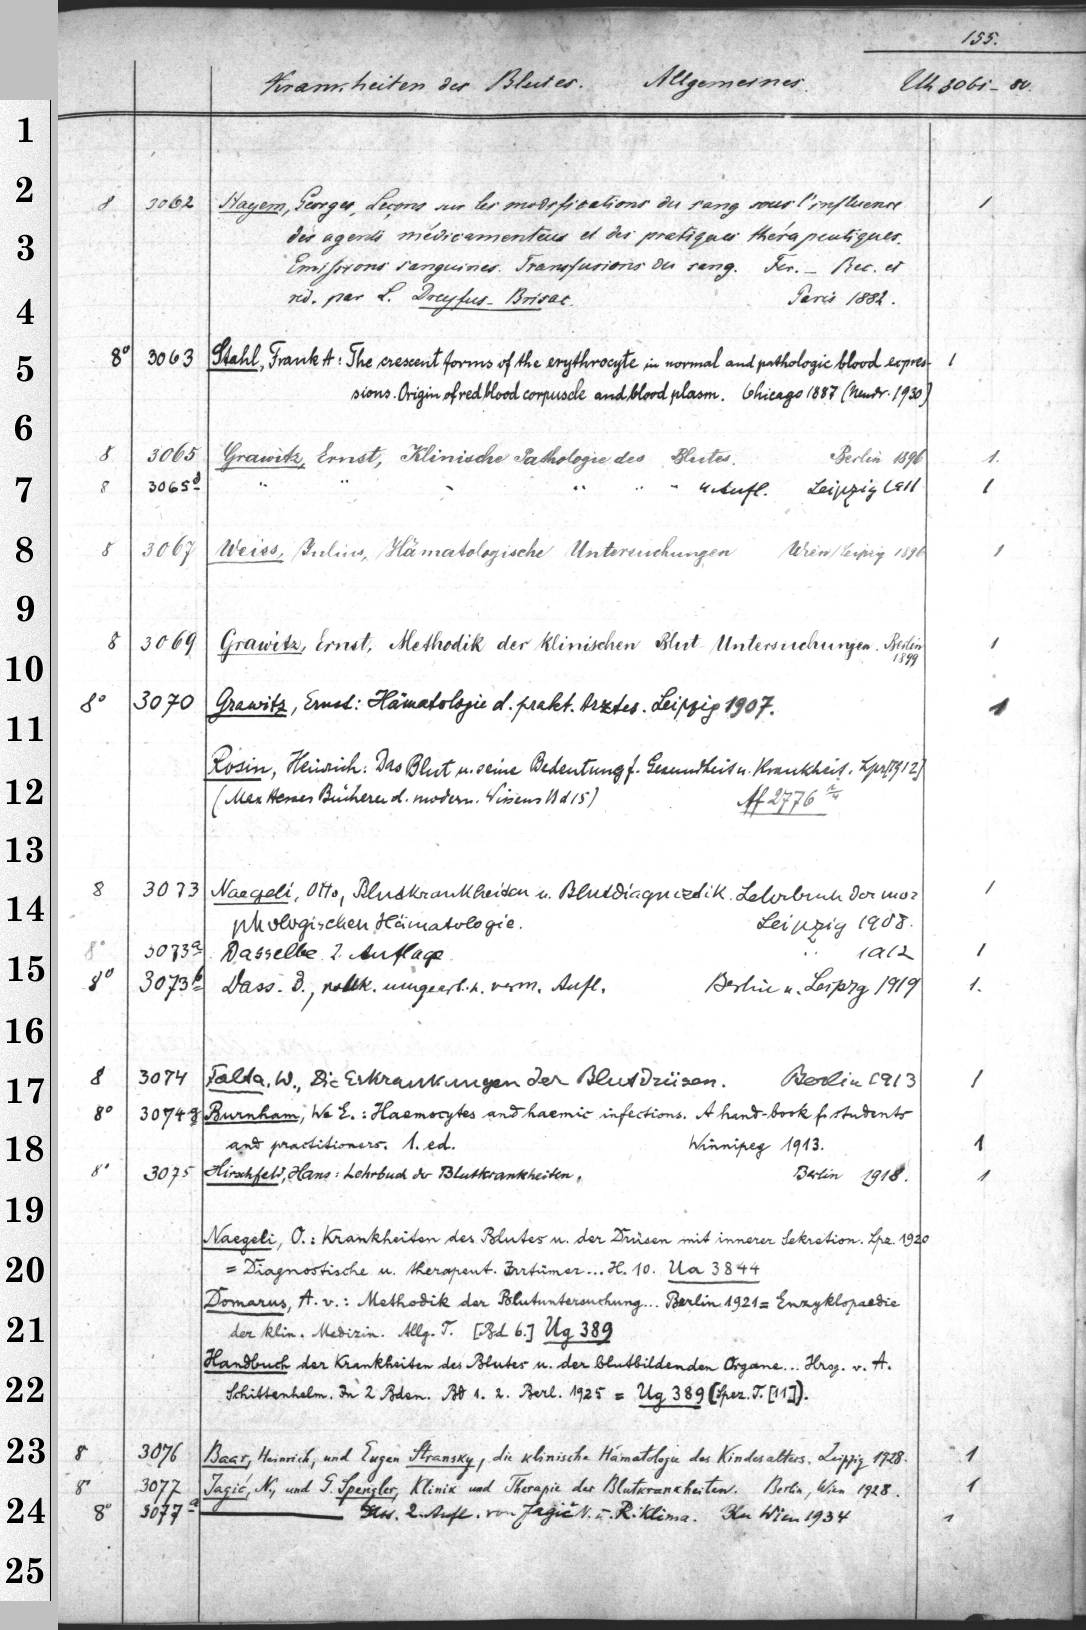 155.
Krankheiten des Blutes. Allgemeines. Uh 3061-80.
1
2
8 3062 Hayem, Georges, Leçons sur les modifications du sang sous l'influence 1
3
des agents médicamenteux et des pratiques thérapeutiques.
Emissions sanguines. Transfusions du sang. Rec. et
4
red. par L. Dreyfus-Brisac. Paris 1882.
5
8° 3063 Stahl, Frank A: The crescent forms of the erythrocyte in normal and pathologic blood expres- 1
sions. Origin of red blood corpuscle and blood plasm. Chicago 1887 (Neudr. 1930)
6
8 3065 Grawitz, Ernst, Klinische Pathologie des Blutes. Berlin 1896 1.
7
8 3065d " " " " " " 4 Aufl. Leipzig 1911 1
8
8 3067 Weiss, Julius, Hämatologische Untersuchungen Wien/Leipzig 1896 1
9
8 3069 Grawitz, Ernst, Methodik der klinischen Blut Untersuchungen. Berlin 1
1899
10
8° 3070 Grawitz, Ernst: Hämatologie d. prakt. Arztes. Leipzig 1907. 1
11
Rosin, Heinrich: Das Blut u. seine Bedeutung f. Gesundheit u. Krankheit. Lpz [1912]
12
(Max Hesses Bücherei d. modern. Wissens Bd 15) Af 2776
13
8 3073 Naegeli, Otto, Blutkrankheiten u. Blutdiagnostik. Lehrbuch der mor= 1
14
phologischen Hämatologie. Leipzig 1908.
8° 3073a Dasselbe 2. Auflage " 1912 1
15
8° 3073b Dass. 3., vollk. umgearb. u. verm. Aufl. Berlin u. Leipzg 1919 1.
16
17
8 3074 Falta, W., Die Erkrankungen der Blutdrüsen. Berlin 1913 1
8° 3074g Burnham, Wm E.: Haemocytes and haemic infections. A hand-book f. students
18
and practitioners. 1. ed. Winnipeg 1913. 1
8° 3075 Hirschfeld, Hans: Lehrbuch der Blutkrankheiten. Berlin 1918. 1
19
Naegeli, O.: Krankheiten des Blutes u. der Drüsen mit innerer Sekretion. Lpz. 1920
20
= Diagnostische u. therapeut. Irrtümer... H. 10. Ua 3844
Domarus, A. v.: Methodik der Blutuntersuchung... Berlin 1921 = Enzyklopaedie
21
der klin. Medizin. Allg. T. [Bd 6.] Ug 389
Handbuch der Krankheiten des Blutes u. der blutbildenden Organe... Hrsg. v. A.
22
Schittenhelm. In 2 Bden. Bd 1. 2. Berl. 1925 = Ug 389 (Spez. T. [11]).
23
8 3076 Baar, Heinrich, und Eugen Stransky, die klinische Hämatologie des Kindesalters. Leipzig 1928. 1
8° 3077 Jagić, N., und G. Spengler, Klinik und Therapie der Blutkrankheiten. Berlin, Wien 1928. 1
24
8° 3077a Dass. 2. Aufl. von Jagić N. u. R. Klima. Bln Wien 1934 1
25